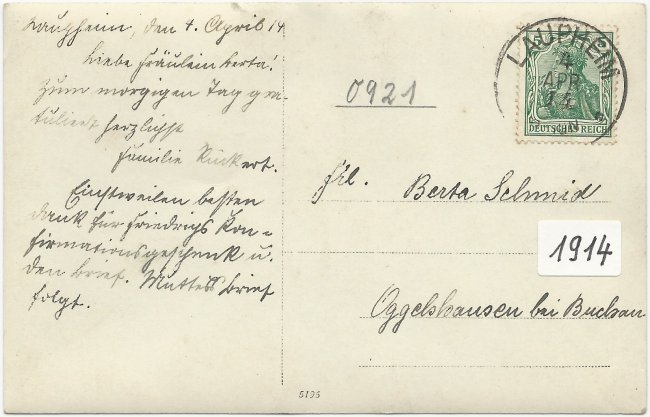 Laupheim, den 4. April 14
Liebe Fräulein Berta!
Zum morgigen Tag gra-
tuliert herzlichst
Familie Rückert.
Einstweilen besten
Dank für Friedrichs Kon-
firmationsgeschenk u.
den Brief. Mutters Brief
folgt.
0921
LAUPHEIM
4
APR
14
DEUTSCHES REICH
Frl. Berta Schmid
1914
Oggelshausen bei Buchau
5195